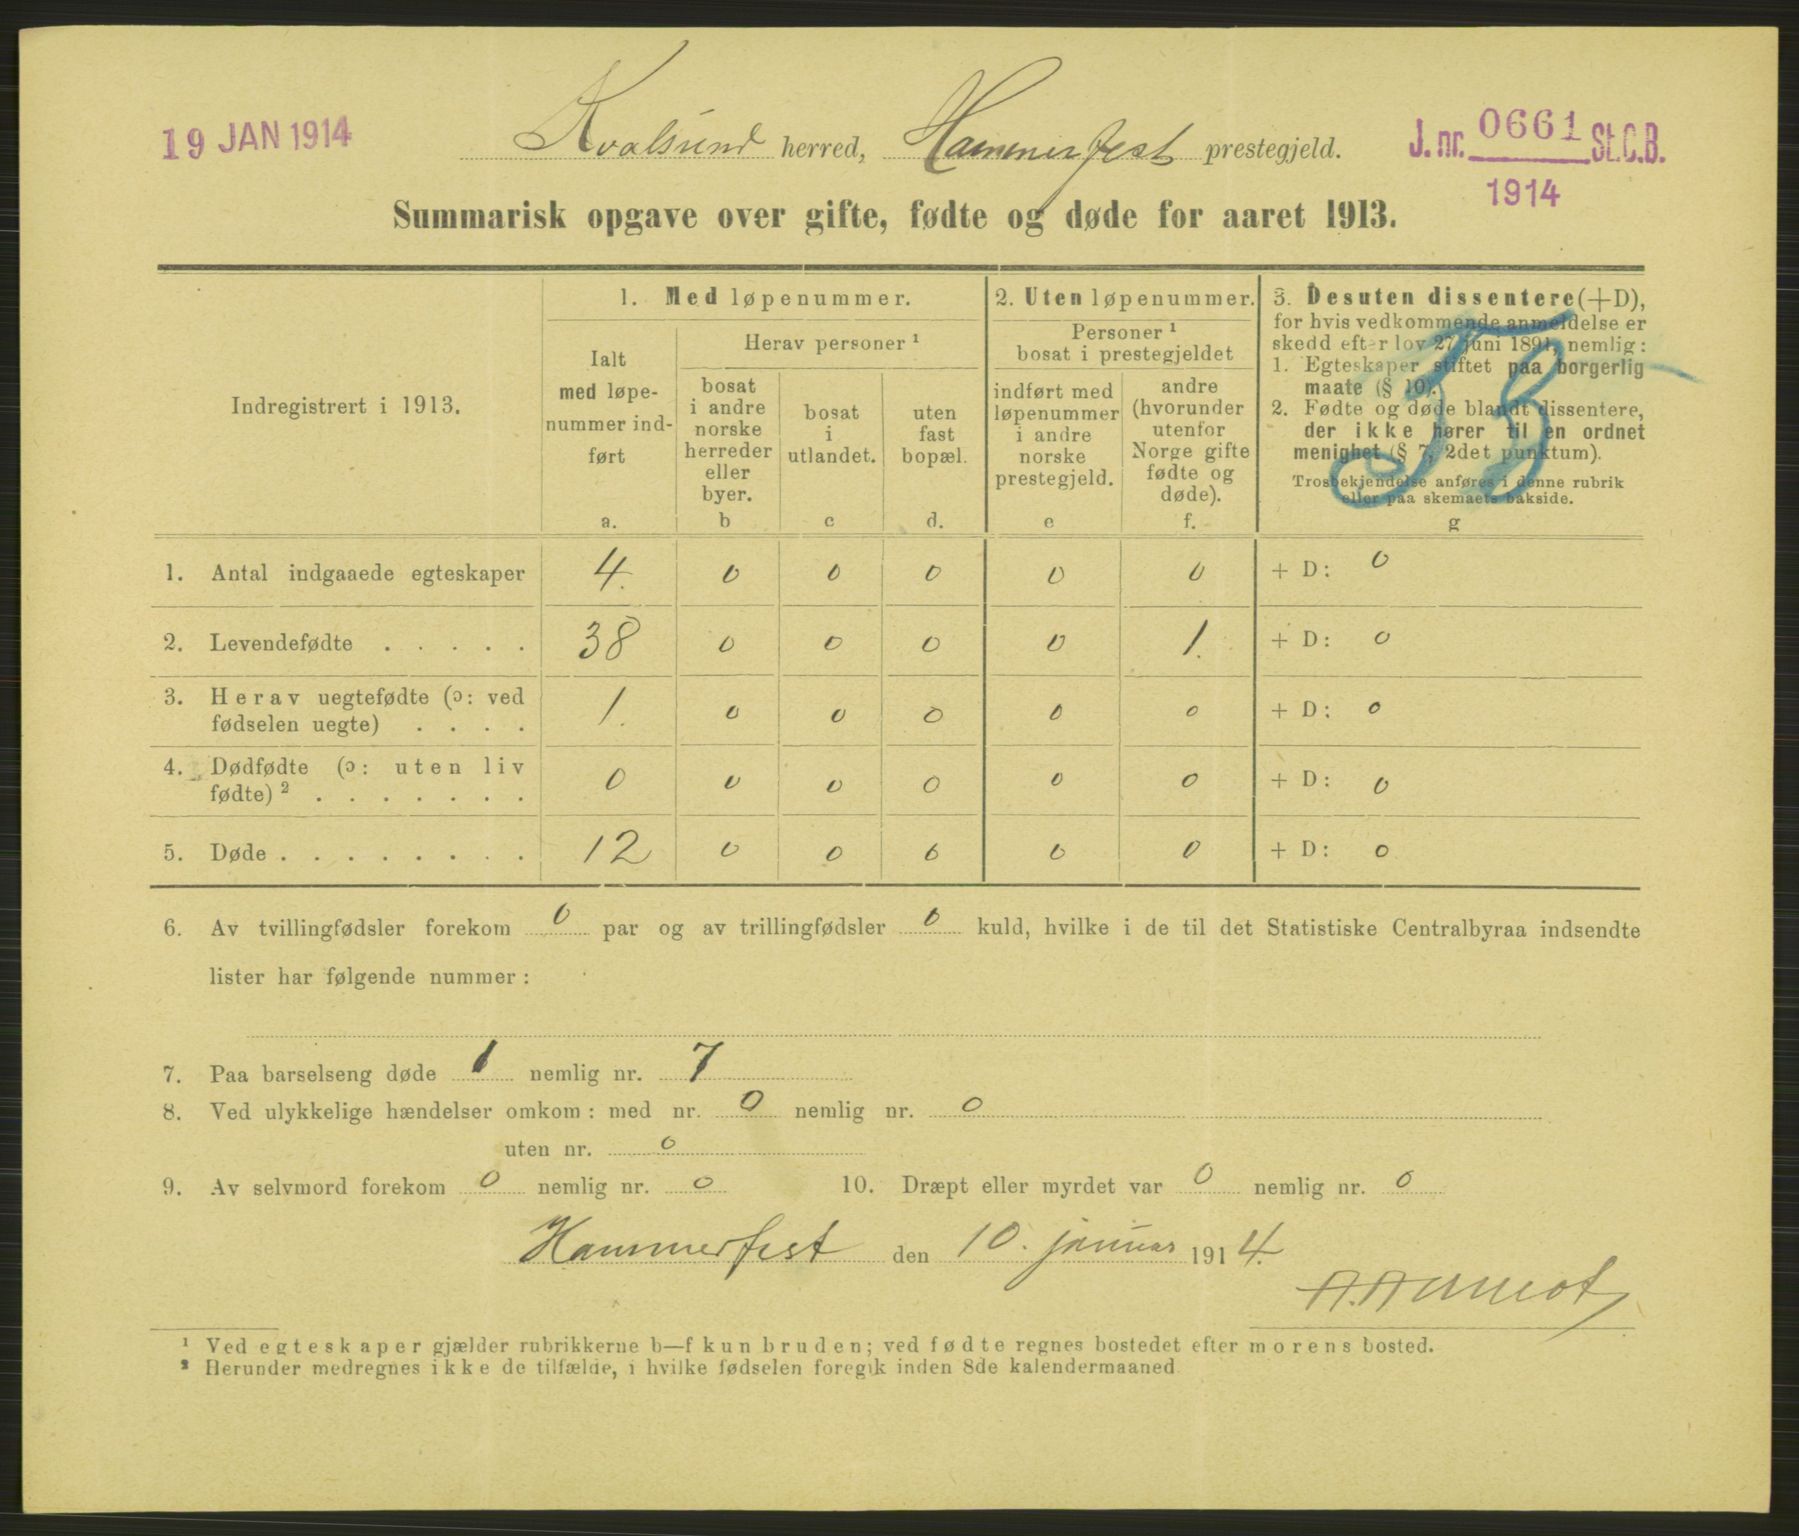 19 JAN 1914
Kvalsund herred, Hammerfest prestegjeld.
J. nr. 0661 St.C.B.
1914
Summarisk opgave over gifte, fødte og døde for aaret 1913.
Indregistrert i 1913.
1. Med løpenummer.
Ialt
med løpe-
nummer ind-
ført
a.
Herav personer ¹
bosat
i andre
norske
herreder
eller
byer.
b
bosat
i
utlandet.
c
uten
fast
bopæl.
d.
2. Uten løpenummer.
Personer ¹
bosat i prestegjeldet
indført med
løpenummer
i andre
norske
prestegjeld.
e
andre
(hvorunder
utenfor
Norge gifte
fødte og
døde).
f.
3. Desuten dissentere (+D),
for hvis vedkommende anmeldelse er
skedd efter lov 27 juni 1891, nemlig:
1. Egteskaper stiftet paa borgerlig
maate (§ 10).
2. Fødte og døde blandt dissentere,
der ikke hører til en ordnet
menighet (§ 7, 2det punktum).
Trosbekjendelse anføres i denne rubrik
eller paa skemaets bakside.
g
1. Antal indgaaede egteskaper 4. 0 0 0 0 0 + D: 0
2. Levendefødte . . . . . 38 0 0 0 0 1. + D: 0
3. Herav uegtefødte (ɔ: ved
fødselen uegte) . . . . 1. 0 0 0 0 0 + D: 0
4. Dødfødte (ɔ: uten liv
fødte) ² . . . . . . . 0 0 0 0 0 0 + D: 0
5. Døde . . . . . . . . 12 0 0 0 0 0 + D: 0
6. Av tvillingfødsler forekom 0 par og av trillingfødsler 0 kuld, hvilke i de til det Statistiske Centralbyraa indsendte
lister har følgende nummer:
7. Paa barselseng døde 1 nemlig nr. 7
8. Ved ulykkelige hændelser omkom: med nr. 0 nemlig nr. 0
uten nr. 0
9. Av selvmord forekom 0 nemlig nr. 0 10. Dræpt eller myrdet var 0 nemlig nr. 0
Hammerfest den 10. januar 1914.
¹ Ved egteskaper gjælder rubrikkerne b—f kun bruden; ved fødte regnes bostedet efter morens bosted.
² Herunder medregnes ikke de tilfælde, i hvilke fødselen foregik inden 8de kalendermaaned